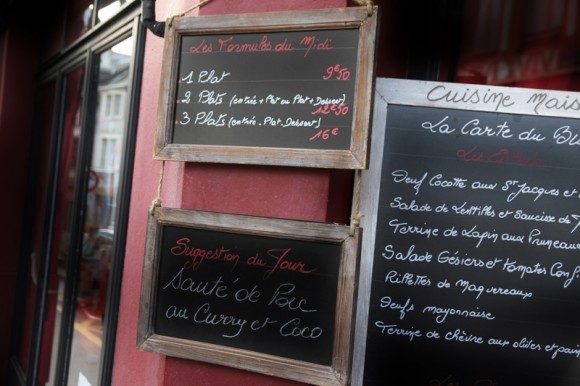 Les Formules du Midi
1 Plat 9€50
2 Plats (entrée + Plat ou Plat + Dessert) 12€50
3 Plats (entrée - Plat - Dessert) 16€
Suggestion du Jour
Sauté de Porc
au Curry et Coco
Cuisine Mais
La Carte du B
Les
Oeuf Cocotte aux St Jacques et
Salade de Lentilles et Saucisse de
Terrine de Lapin aux Pruneaux
Salade Gésiers et tomates Conf
Rillettes de Maquereaux
Oeufs mayonnaise
Terrine de chèvre aux olives et pain